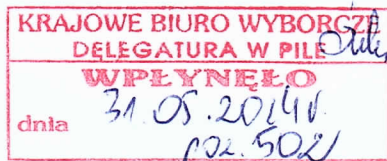 KRAJOWE BIURO WYBORCZE
DELEGATURA W PILE
WPŁYNĘŁO
dnia 31.05.2014r.
poz. 502/